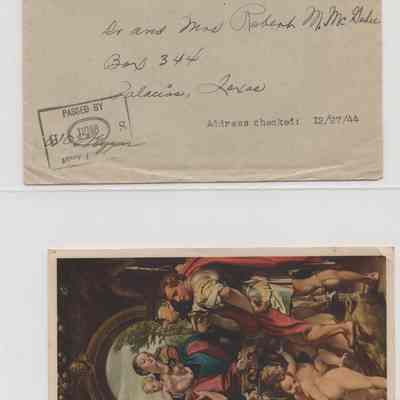 Dr and Mrs Robert M. McDade
Box 344
Palacios, Texas
PASSED BY
U S
Address checked: 12/27/44